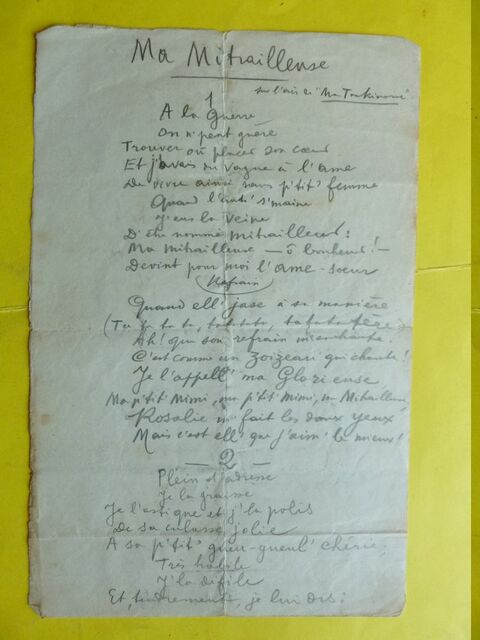 Ma Mitrailleuse
sur l'air de "Ma Tonkinoise"
1
A la Guerre
On n'peut guère
Trouver où placer son cœur
Et j'avais du vague à l'âme
De vivre ainsi sans p'tit' femme
Quand l'autr' s'maine
J'eus la veine
D'êtr' nommé mitrailleur:
Ma mitrailleuse — ô bonheur! —
Devint pour moi l'âme-sœur
Refrain
Quand ell' jase à sa manière
(Ta ta ta ta, tatatata, tatatatère)
Ah! que son refrain m'enchante
C'est comme un zoizeau qui chante!
Je l'appell' ma Glorieuse
Ma p'tit' Mimi, ma p'tit' mimi, ma Mitrailleuse,
Rosalie m' fait les doux yeux
Mais c'est ell' que j'aim' le mieux!
— 2 —
Plein d'adresse
Je la graisse
Je l'astique et j'la polis
De sa culasse jolie
A sa p'tit' gueu-gueul' chérie,
Très habile
J'la défile
Et, tendrement, je lui dis: